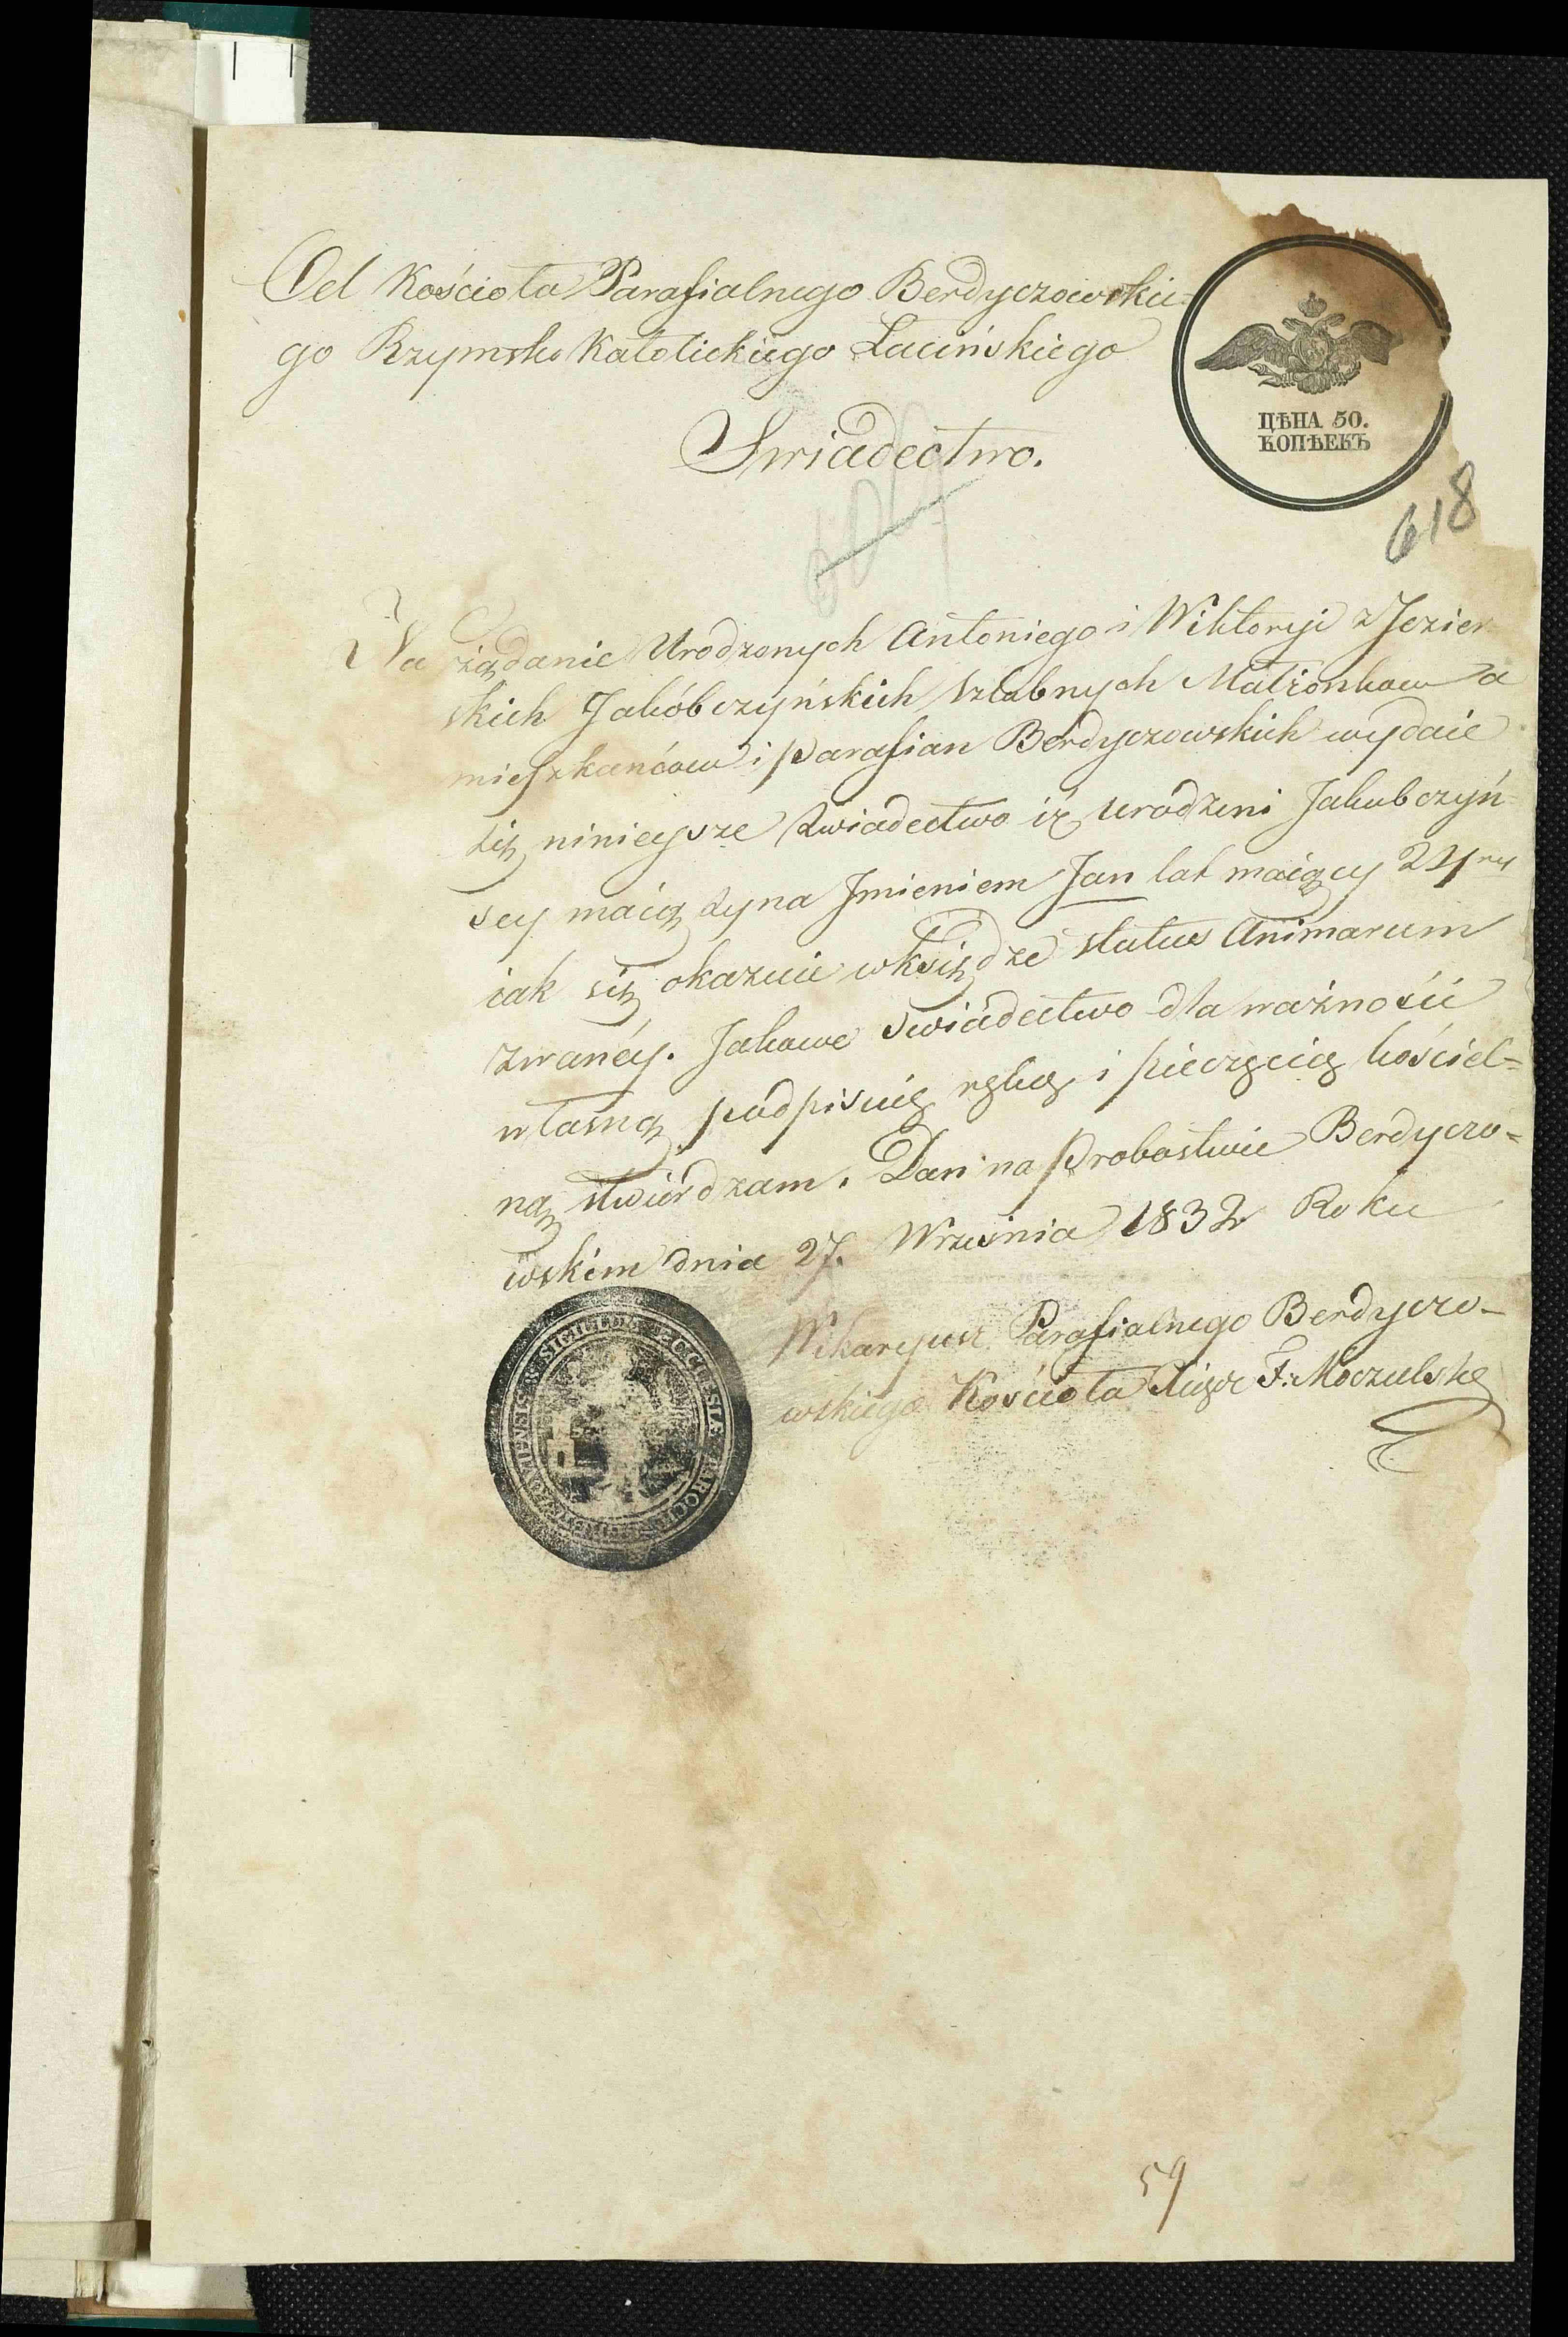 Od Kościoła Parafialnego Berdyczowskie=
go Rzymsko Katolickiego Łacińskiego
ЦѢНА 50.
КОПѢЕКЪ
Swiadectwo.
618
Na żądanie Urodzonych Antoniego i Wiktoryi z Jezier
skich Jakóbczyńskich szlubnych Małżonkow a
mieszkańcow i parafian Berdyczowskich wydaie
się ninieysze swiadectwo iż Urodzeni Jakubczyń=
scy maią syna Jmieniem Jan lat maiący 24ry
iak się okazuie w księdze status Animarum
zwanéy. Jakowe swiadectwo dla ważności
własną podpisuię ręką i pieczęcią kościel=
ną stwierdzam. Dan na Probostwie Berdyczo=
wskim dnia 27. Wrzesnia 1832 Roku
Wikaryusz Parafialnego Berdyczo-
wskiego Kościoła Xiądz F: Moczulski
SIGILLUM ECCLESIÆ PAROCH
59